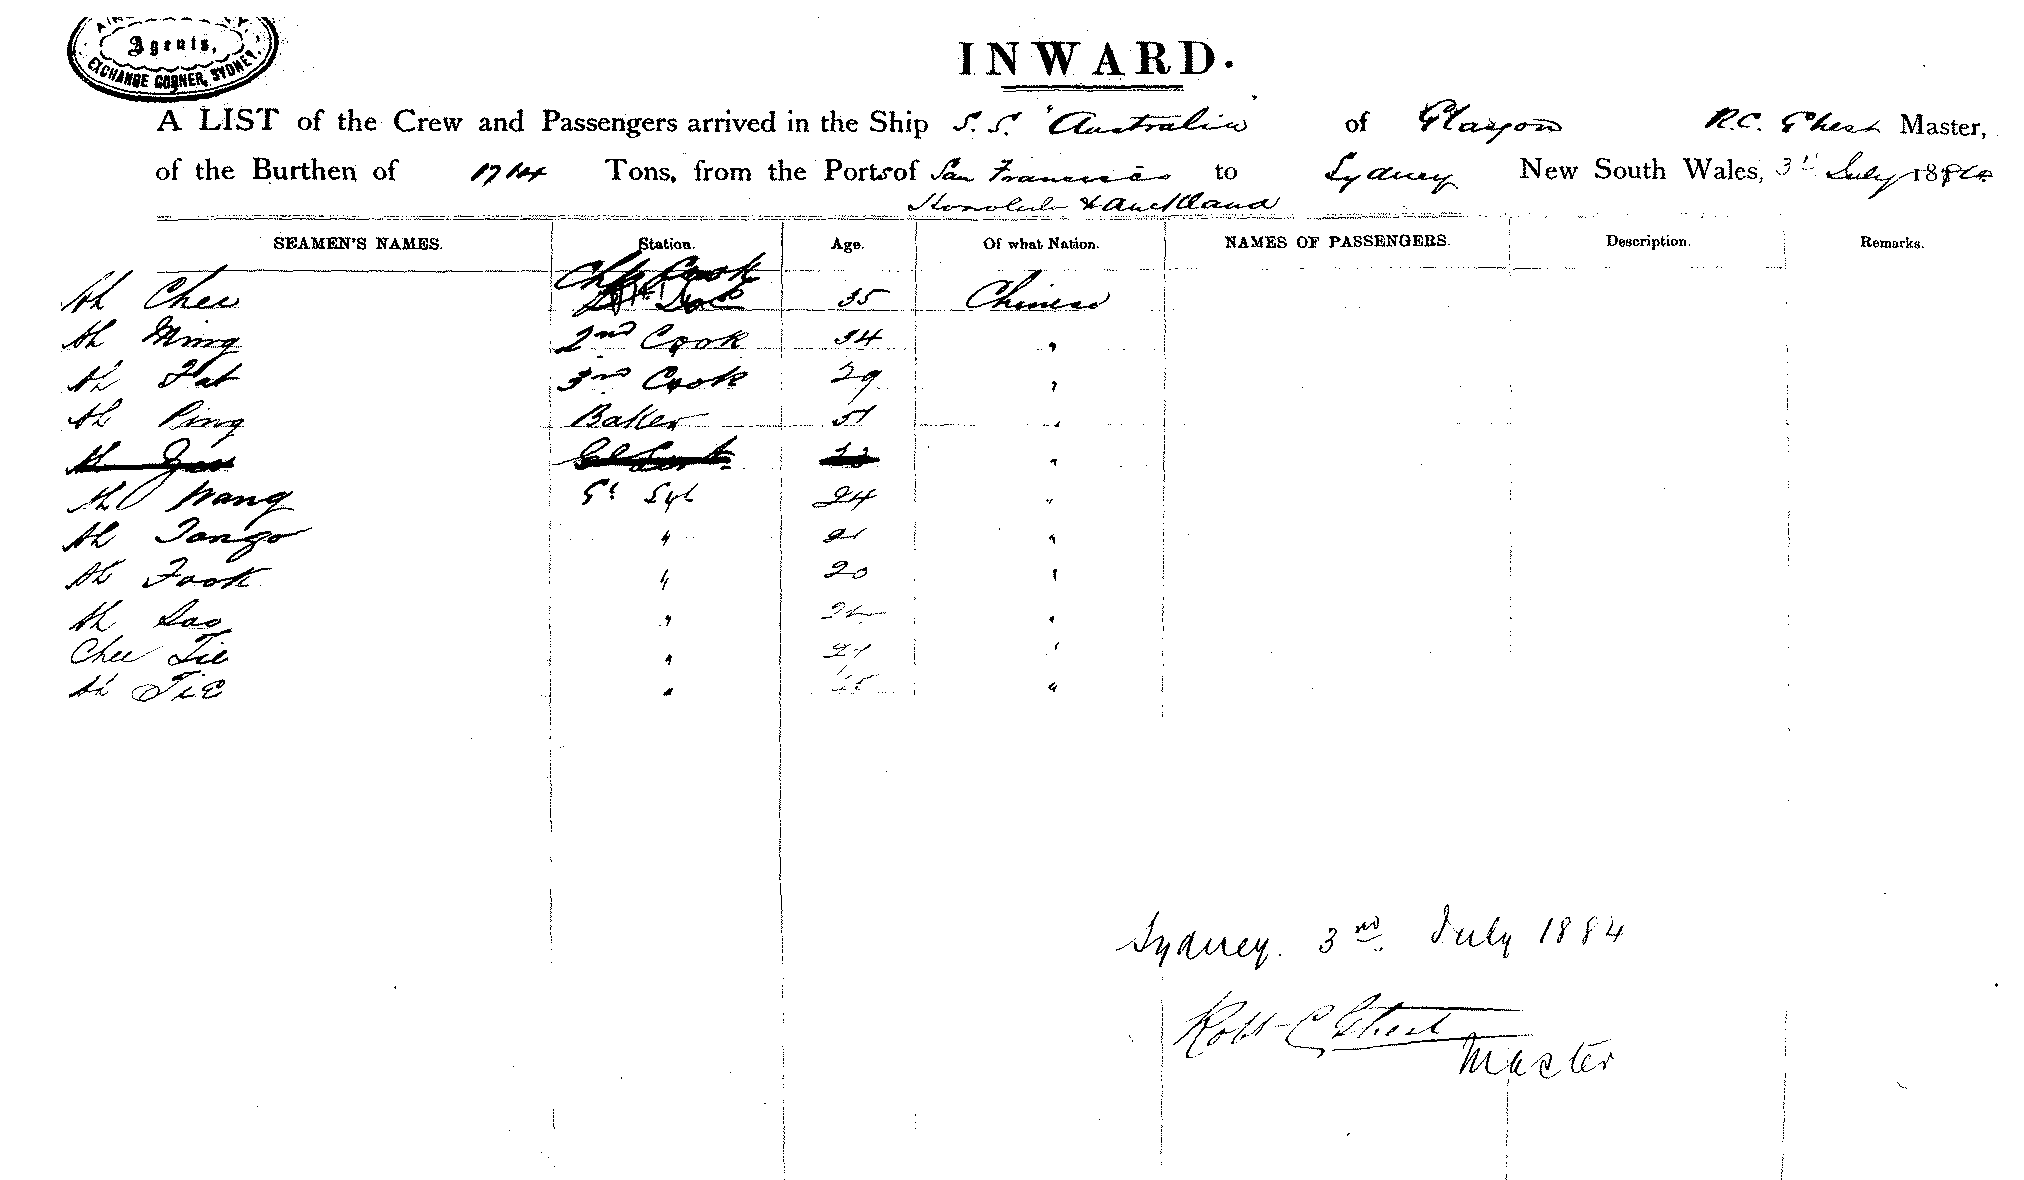 Agents,
EXCHANGE CORNER, SYDNEY.
INWARD.
A LIST of the Crew and Passengers arrived in the Ship S.S. "Australia" of Glasgow R.C. Ghest Master,
of the Burthen of 1714 Tons, from the Ports of San Francisco to Sydney New South Wales, 3rd July 1884
Honolulu & Auckland
SEAMEN'S NAMES. Station. Age. Of what Nation. NAMES OF PASSENGERS. Description. Remarks.
Ah Chee Cook 35 Chinese
Ah Ming 2nd Cook 34 "
Ah Fat 3rd Cook 29 "
Ah Ping Baker 51 "
Ah "
Ah Wang 24 "
Ah Tango " 21 "
Ah Fook " 20 "
Ah " "
Chee Tie " "
Ah Tie " "
Sydney. 3rd July 1884
Robt C Ghest
Master